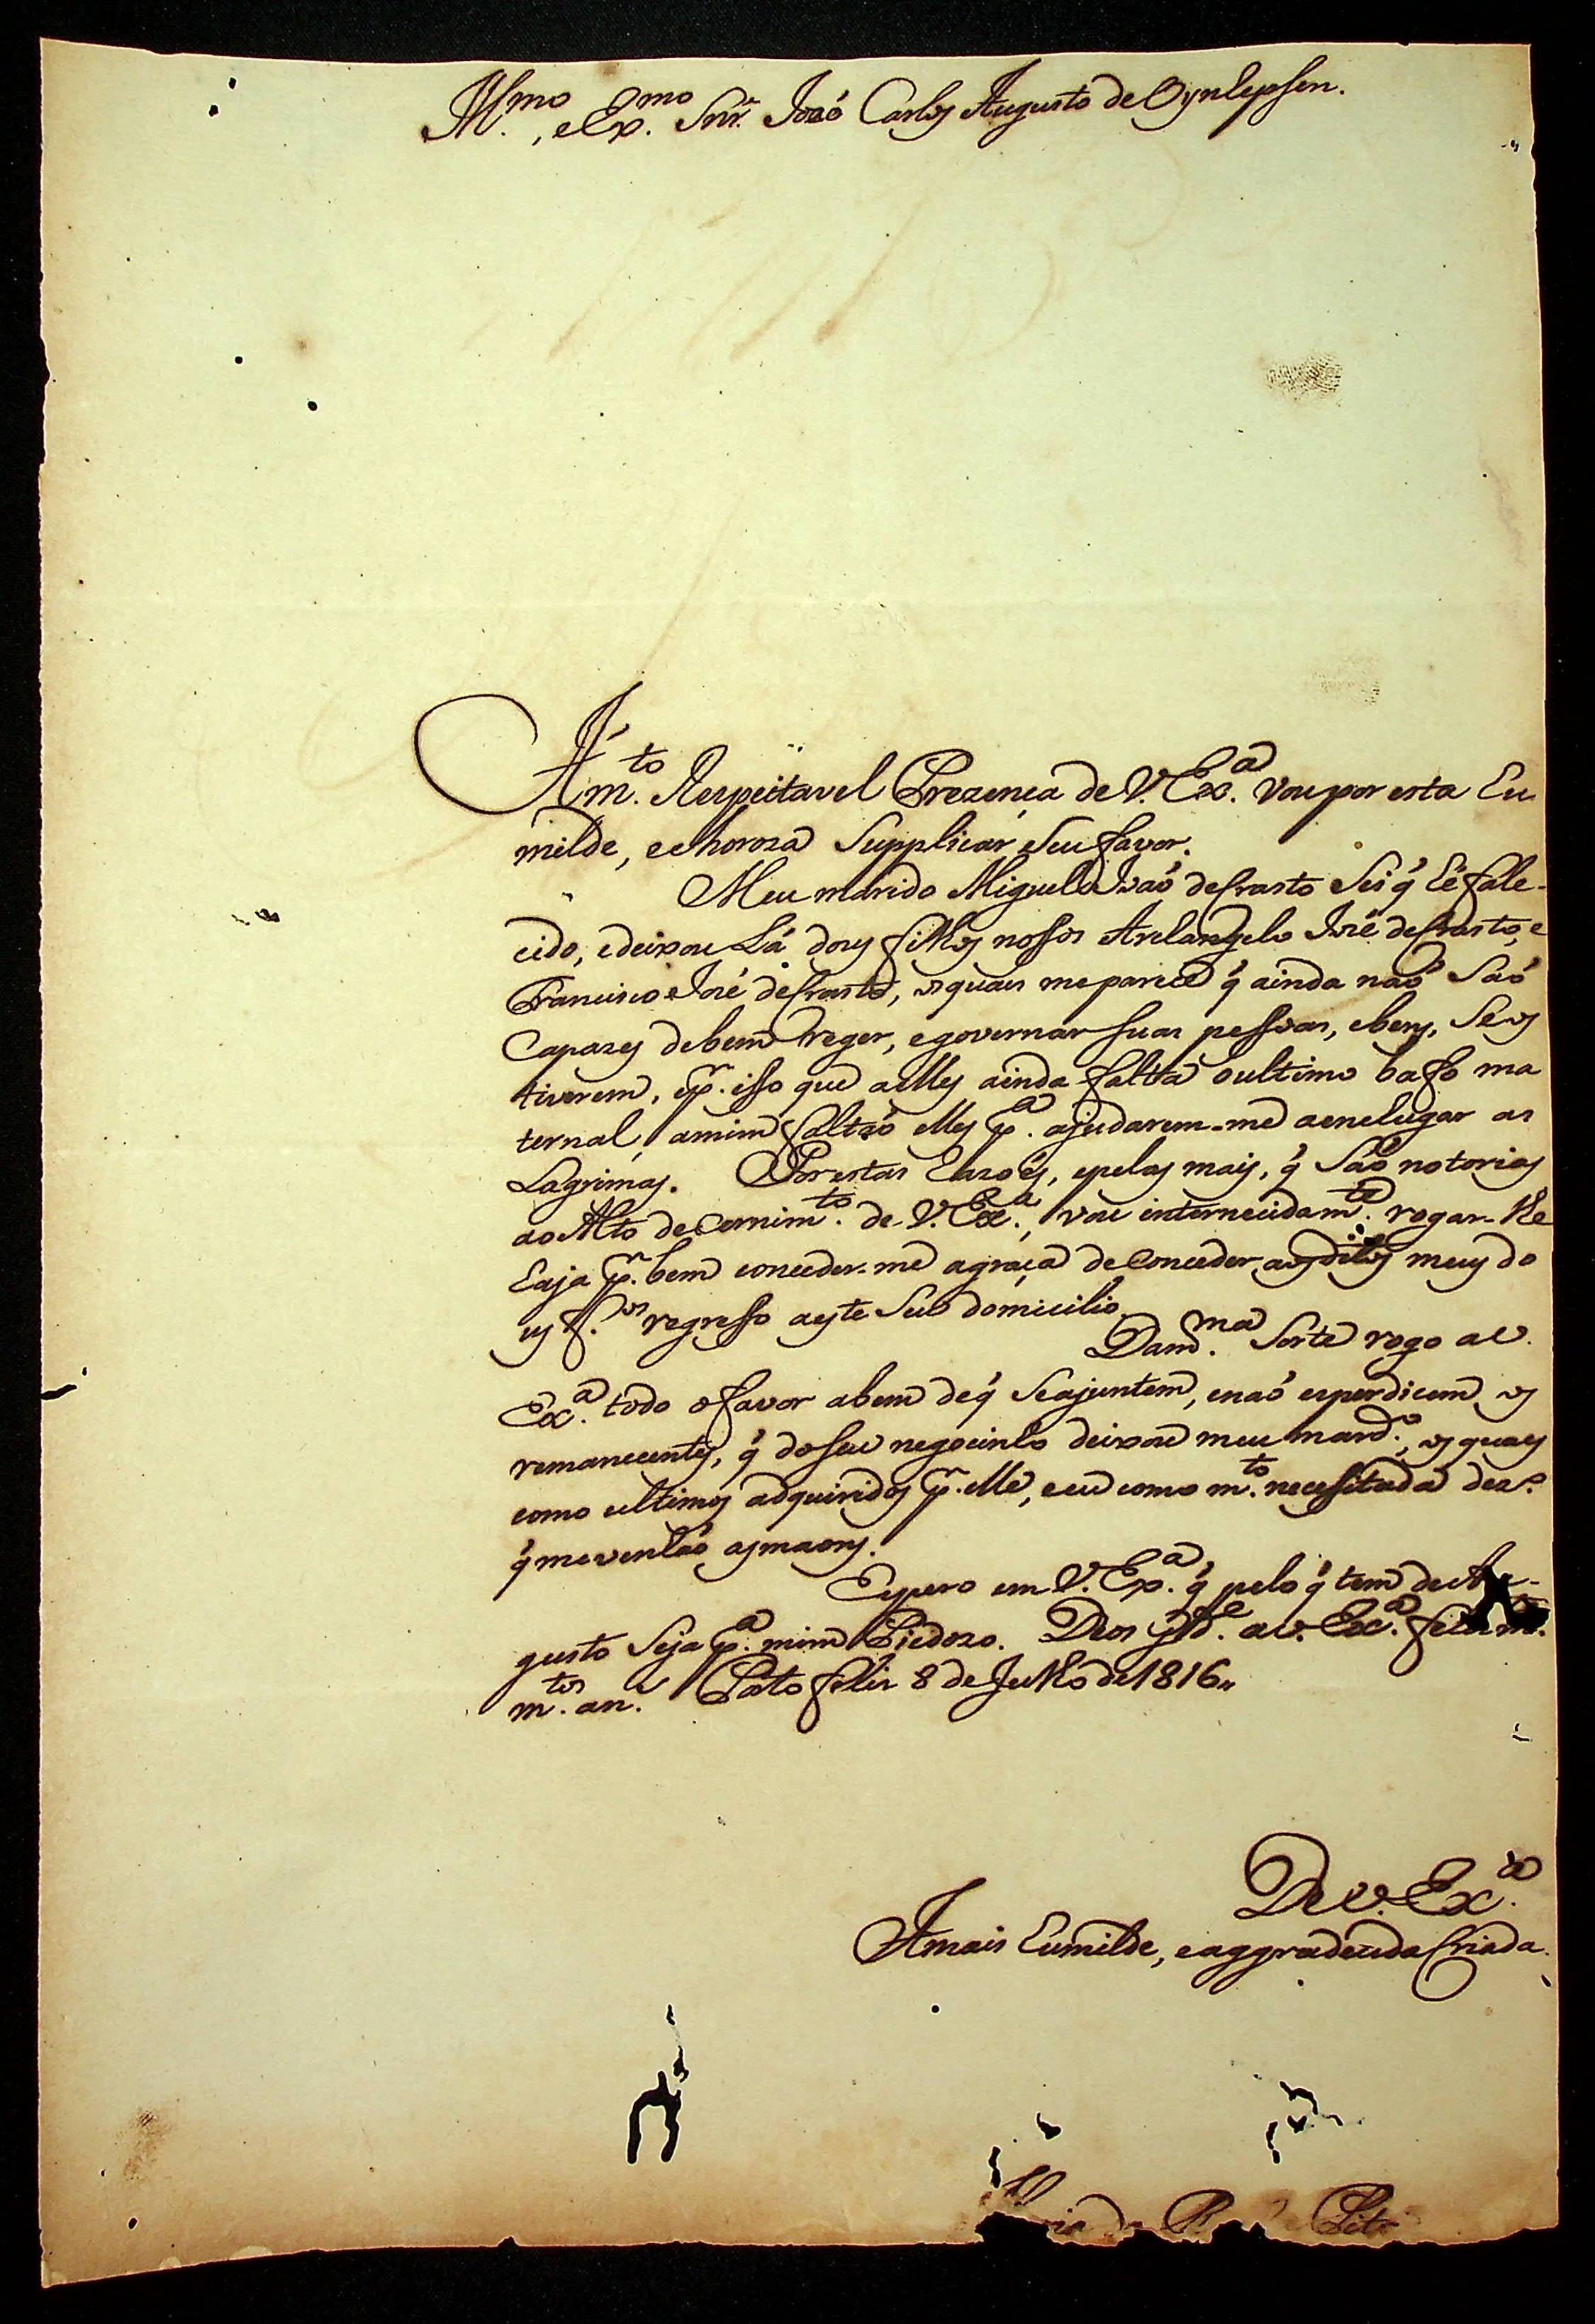 Ill.mo, e Ex.mo Snr. Joaó Carlos Augusto de Oynlepsen.
A m.to Respeitavel Prezença de V. Ex.a vou por esta Eu
milde, e choroza Supplicar seu favor.
Meu marido Miguel Joaó de Crasto Sei q̃ hé fale-
cido, e deixou Lá dous filhos nossos Arclangelo José de Crasto, e
Francisco José de Crasto, os quais me parece q̃ ainda naó Saó
Capazes de bem reger, e governar suas pessoas, e bens, Se os
tiverem, e p.r isso que a elles ainda falta o ultimo bafo ma
ternal, a mim faltaó elles p.a ajudarem-me a enchugar as
Lagrimas. Por estas razoẽs, e pelas mais, q̃ Saó notorias
ao Alto decernim.to de V. Ex.a, vou internecidam.te rogar-lhe
haja p.r bem conceder-me a graça de Conceder aos ditos meus do
us f.os regresso a este Seu domicilio.
Da m.ma Sorte rogo a V.
Ex.a todo o favor a bem de q̃ Se ajuntem, e naó esperdicem os
remanecentes, q̃ do seu negocinho deixou meu marid.o, os quaes
como ultimos adquiridos p.r elle, e eu como m.to necessitada dez.o
q̃ me venhaó as maons.
Espero em V. Ex.a q̃ pelo q̃ tem de Au-
gusto Seja p.a mim Piedozo. Deos g.de a V. Ex.a
m.tos an.s Porto feliz 8 de Julho de 1816,,
De V. Ex.a
A mais humilde, e aggradecida Criada.